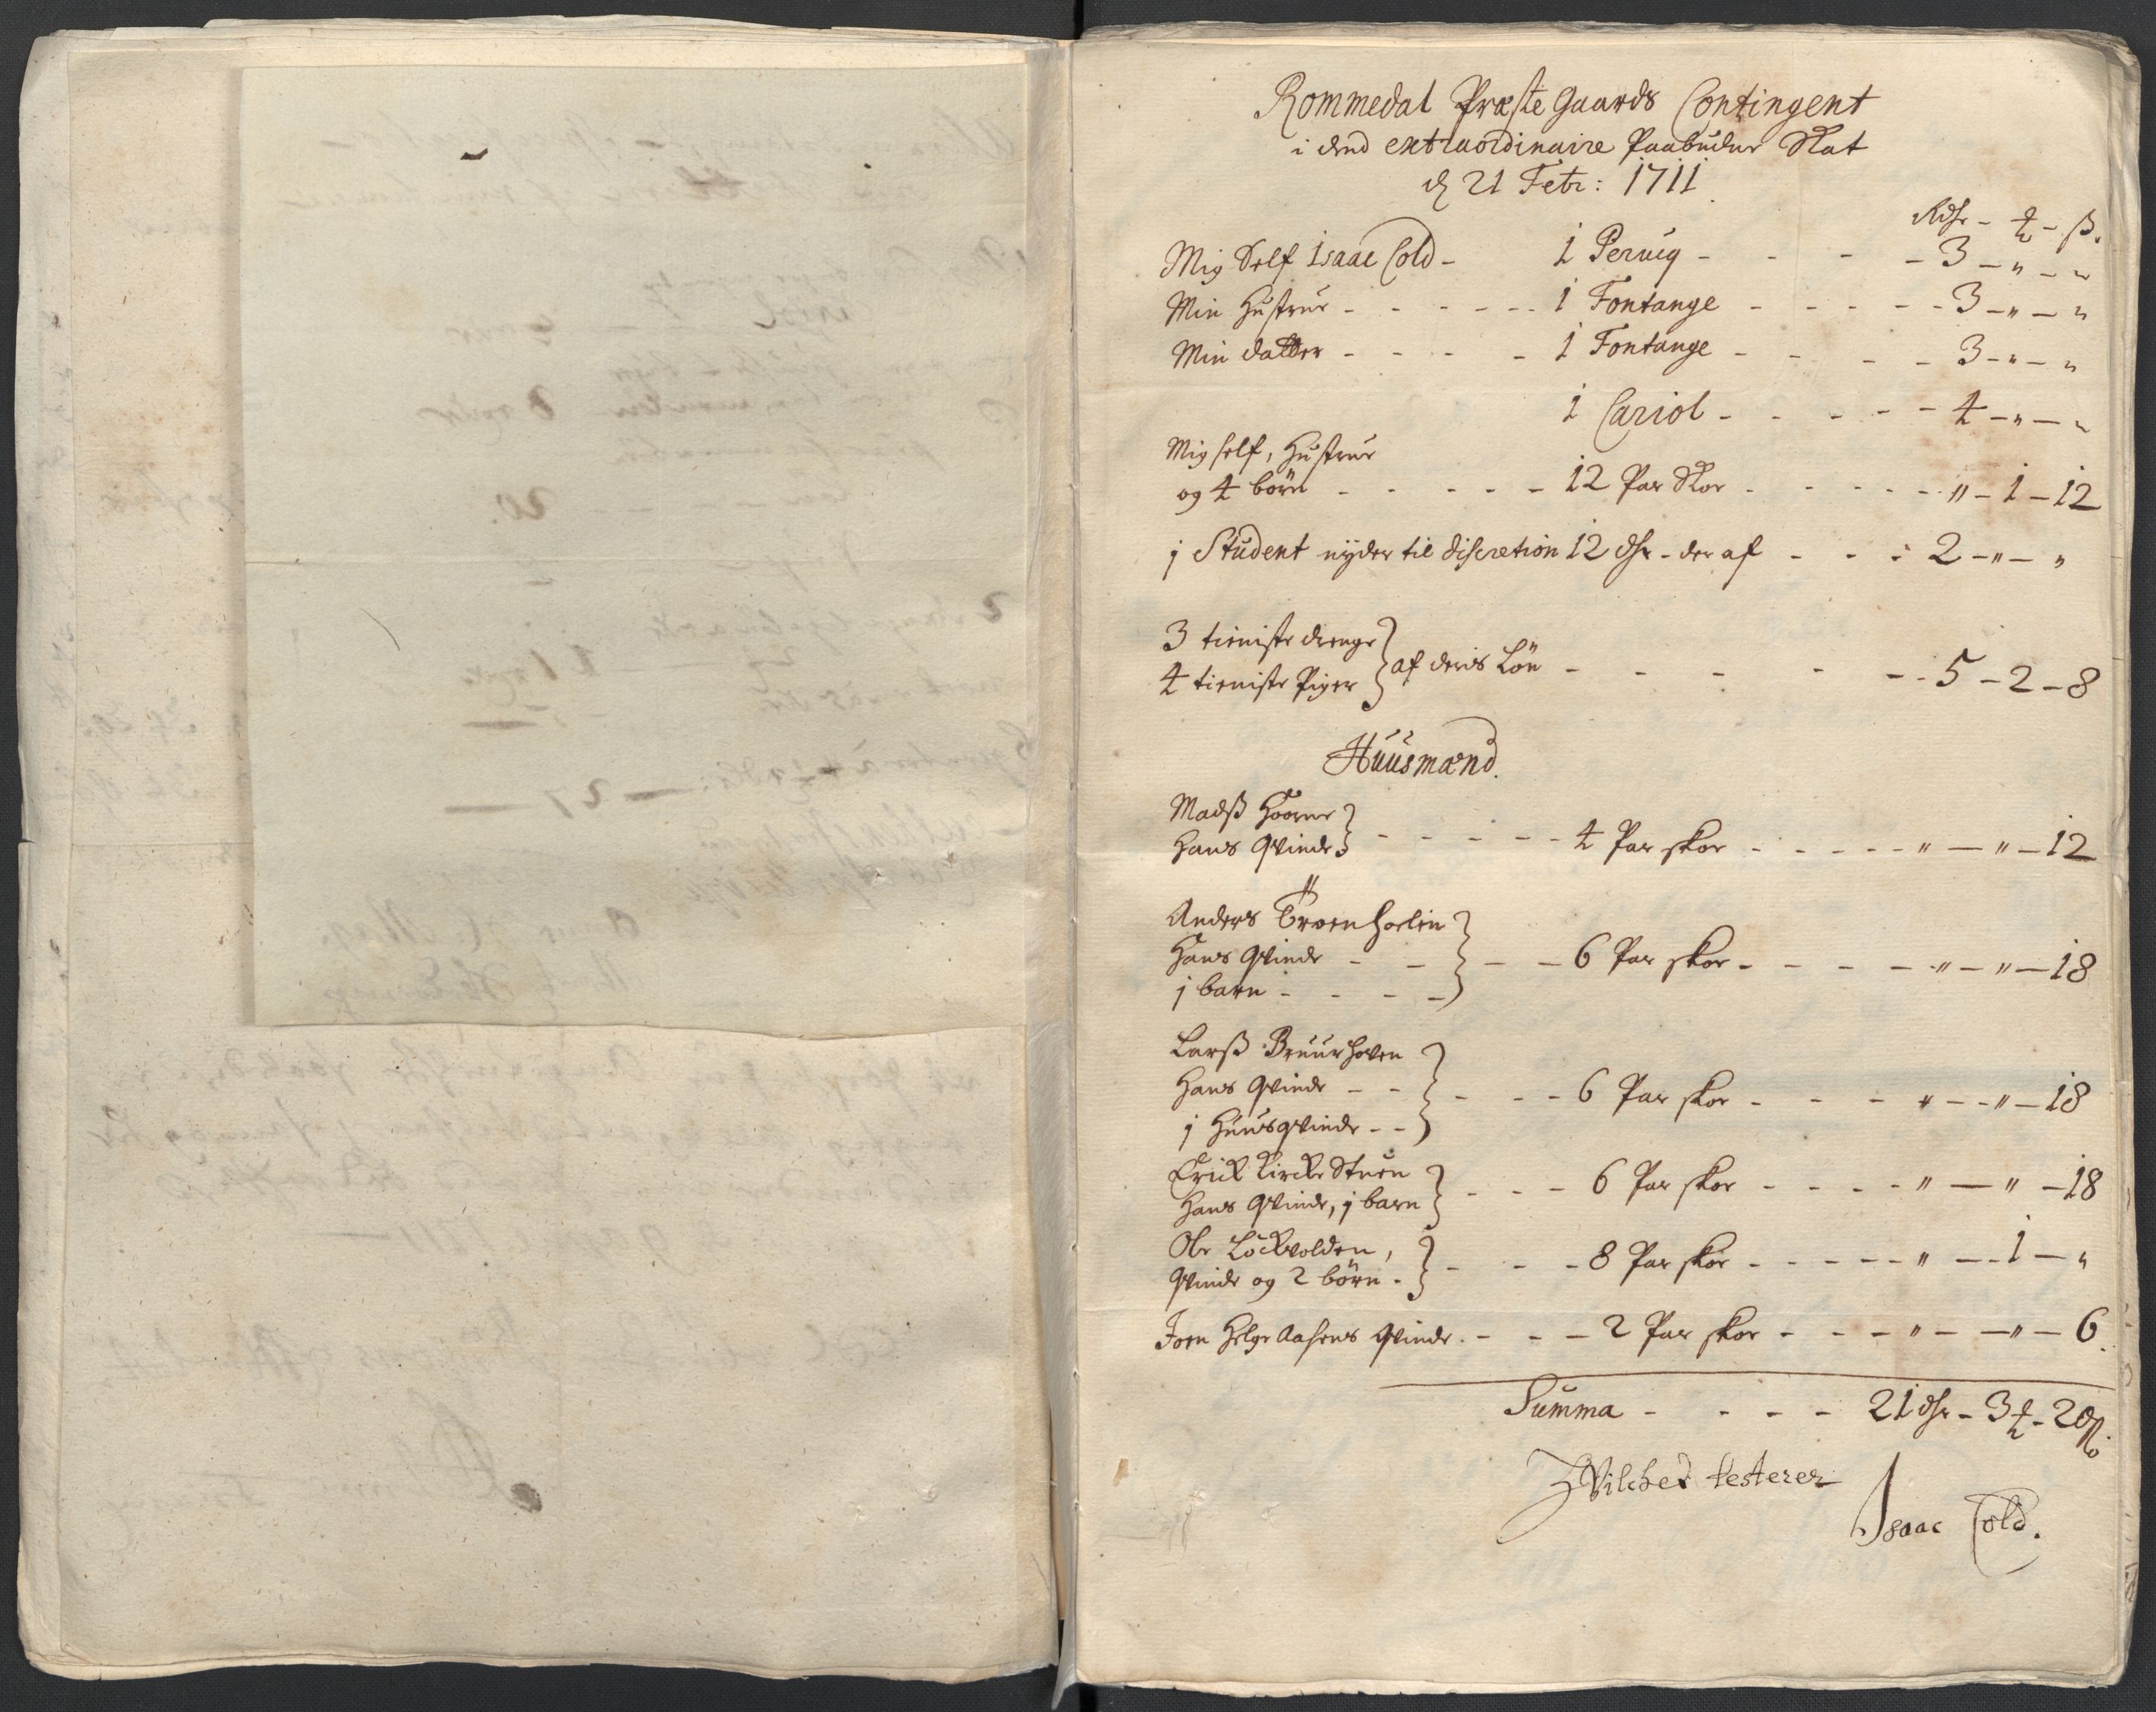 Rommedal Præste gaards Contingent
i dend extraordinaire Paabudne Skat
d 21 Febr: 1711
Rdr - ß.
Mig Self Isaac Cold - 1 Peruq - - - - 3 - " - "
Min Hustrue - - - - - 1 Fontange - - - - - 3 - " - "
Min datter - - - - 1 Fontange - - - - 3 - " - "
1 Cariol - - - - - 4 - " - "
Mig self, Hustrue
og 4 börn - - - - - 12 Par Skoe - - - - - " - 1 - 12
1 Student nyder til discretion 12 dr - der af - - - 2 - " - "
3 tieniste drenge
4 tieniste Piger } af deris Lön - - - - - 5 - 2 - 8
Huusmænd.
Madß
Hans Qvinde } - - - - - 4 Par skoe - - - - - " - " - 12
Anders
Hans Qvinde - -
1 barn - - - - } - - 6 Par skoe - - - - - " - " - 18
Larß Bruurhoven
Hans Qvinde - -
1 Huusqvinde - - } - - - 6 Par skoe - - - " - " - 18
Erick Kircke Stuen
Hans Qvinde, 1 barn } - - - 6 Par skoe - - - - " - " - 18
Ole Löckvolden,
Qvinde og 2 börn - } - - - 8 Par skoe - - - - - " - 1 - "
Joen Helge Aasens Qvinde - - - 2 Par skoe - - - " - " - 6.
Summa - - - - 21 dr - 3 - 20 ß
Hvilchet testerer
Isaac Cold.